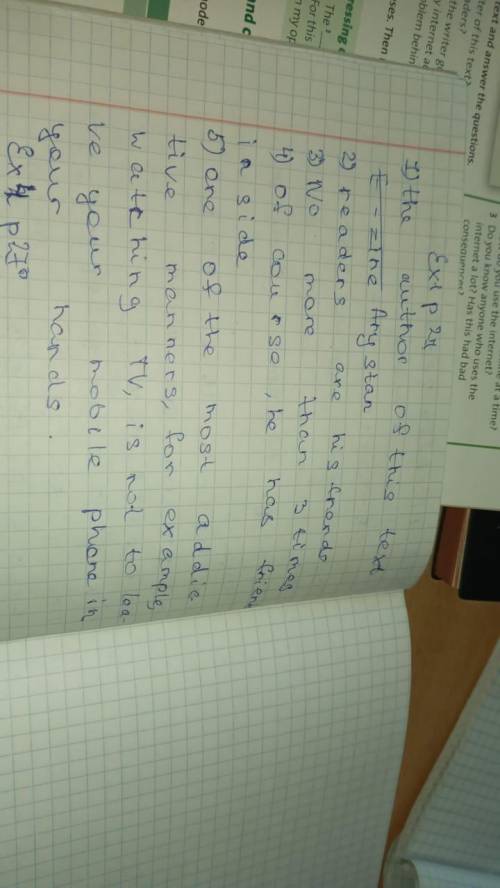 text and answer the questions.
ter of this text?
nders?
the writer g
y internet a
oblem behin
ses. Then
ressing
The
for this
n my op
and c
3 Do you know anyone who uses the
you use the internet?
at a time?
internet a lot? Has this had bad
consequences?
Ex1 p 27
1) the author of this text
the Arystan
2) readers are his frends
3) No more than 3 times
4) of course, he has frien
in side
5) one of the most addic
tive manners, for example,
watching TV, is not to lea-
ve your mobile phone in
your hands.
Ex p27